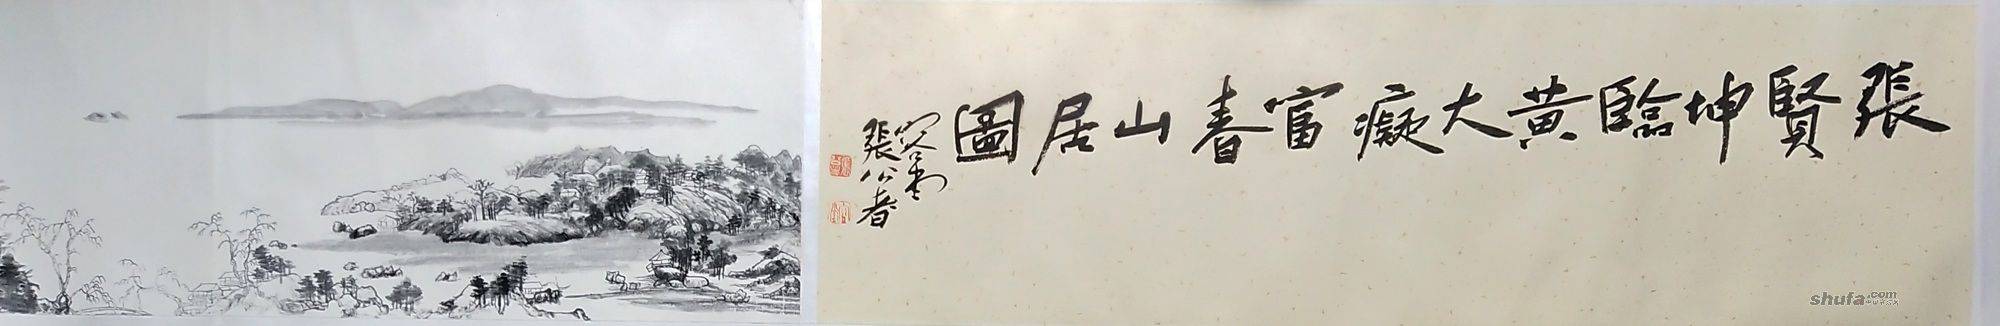 張賢坤臨黄大癡富春山居圖
張公者
shufa.com